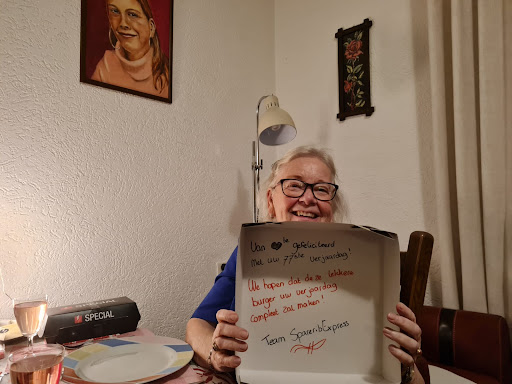 Van ♥te gefeliciteerd
met uw 77ste verjaardag!
We hopen dat deze lekkere
burger uw verjaardag
compleet zal maken!
Team SpareribExpress
SPECIAL